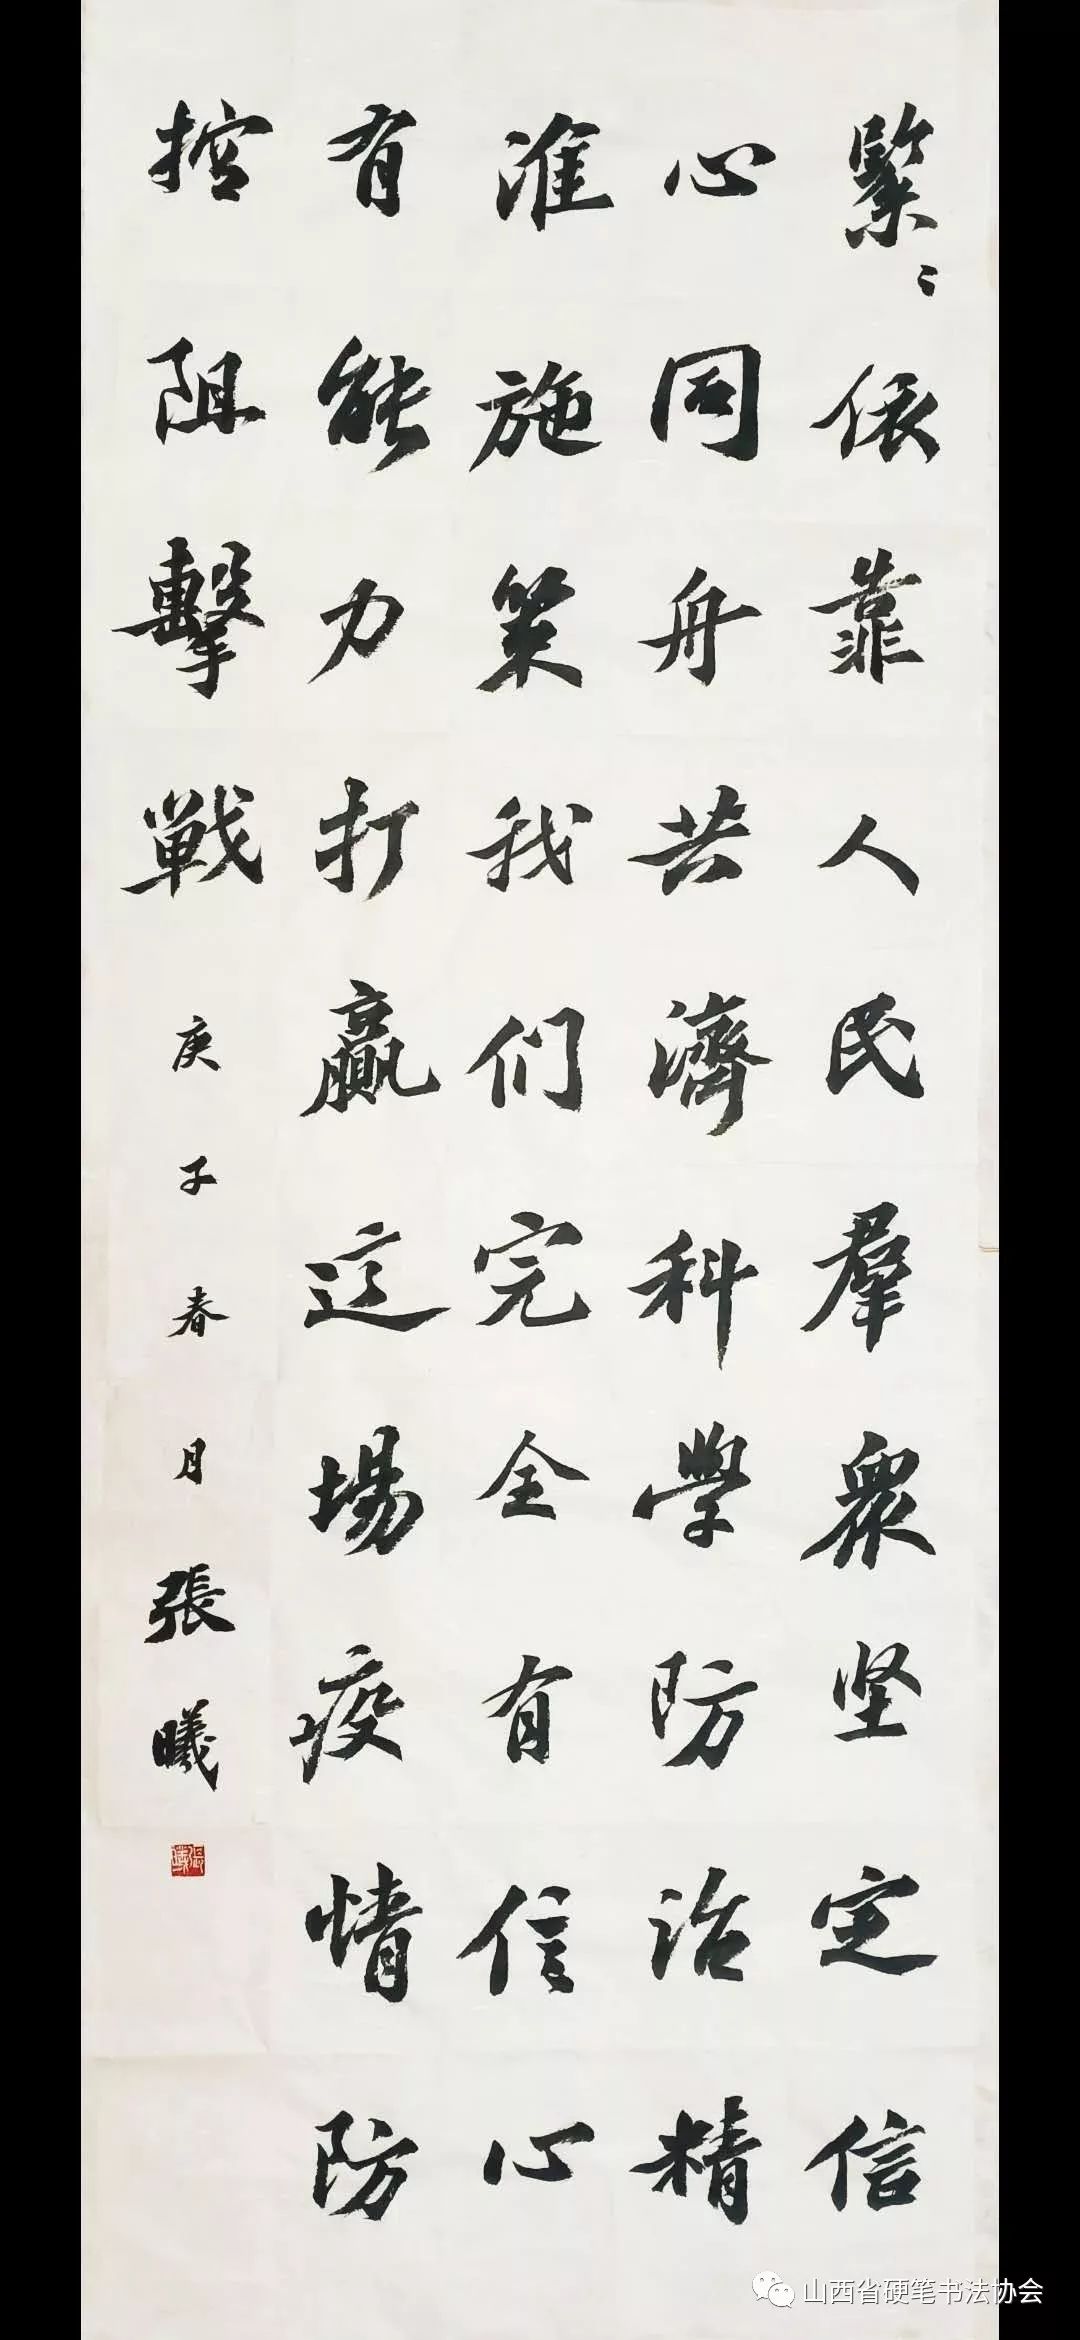 緊〻依靠人民羣衆坚定信
心同舟共濟科學防治精
準施策我们完全有信心
有能力打贏这場疫情防
控阻擊戰
庚子春月張曦
張曦
山西省硬笔书法协会